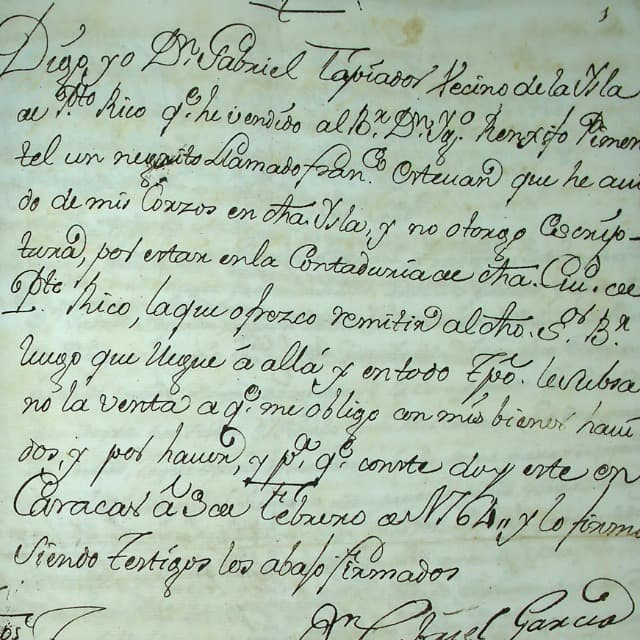 Digo, yo Dn. Gabriel Tapiador Vecino de la Ysla
de Pto Rico qe. he vendido al Br. Dn. Jph. Renxifo Pimen
tel un negrito Llamado Franco. Estevan que he avi
do de mis Corzos en dha. Ysla, y no otorgo Escrip-
tura, por estar en la Contaduria de dha. Ciud. de
Pto Rico, la que ofrezco remitir al dho. Sor. Br.
luego que llegue á allá y en todo Tpo. le Subsa
no la venta a qe. me obligo con mis bienes havi
dos, y por haver, y pa. qe. conste doy este en
Caracas á 3 de Febrero de 1764,, y lo firmo
Siendo Testigos los abajo firmados
Garcia